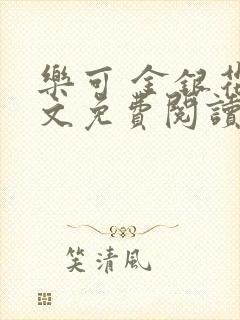 樂可 金銀花
文免費閱讀
笑清風